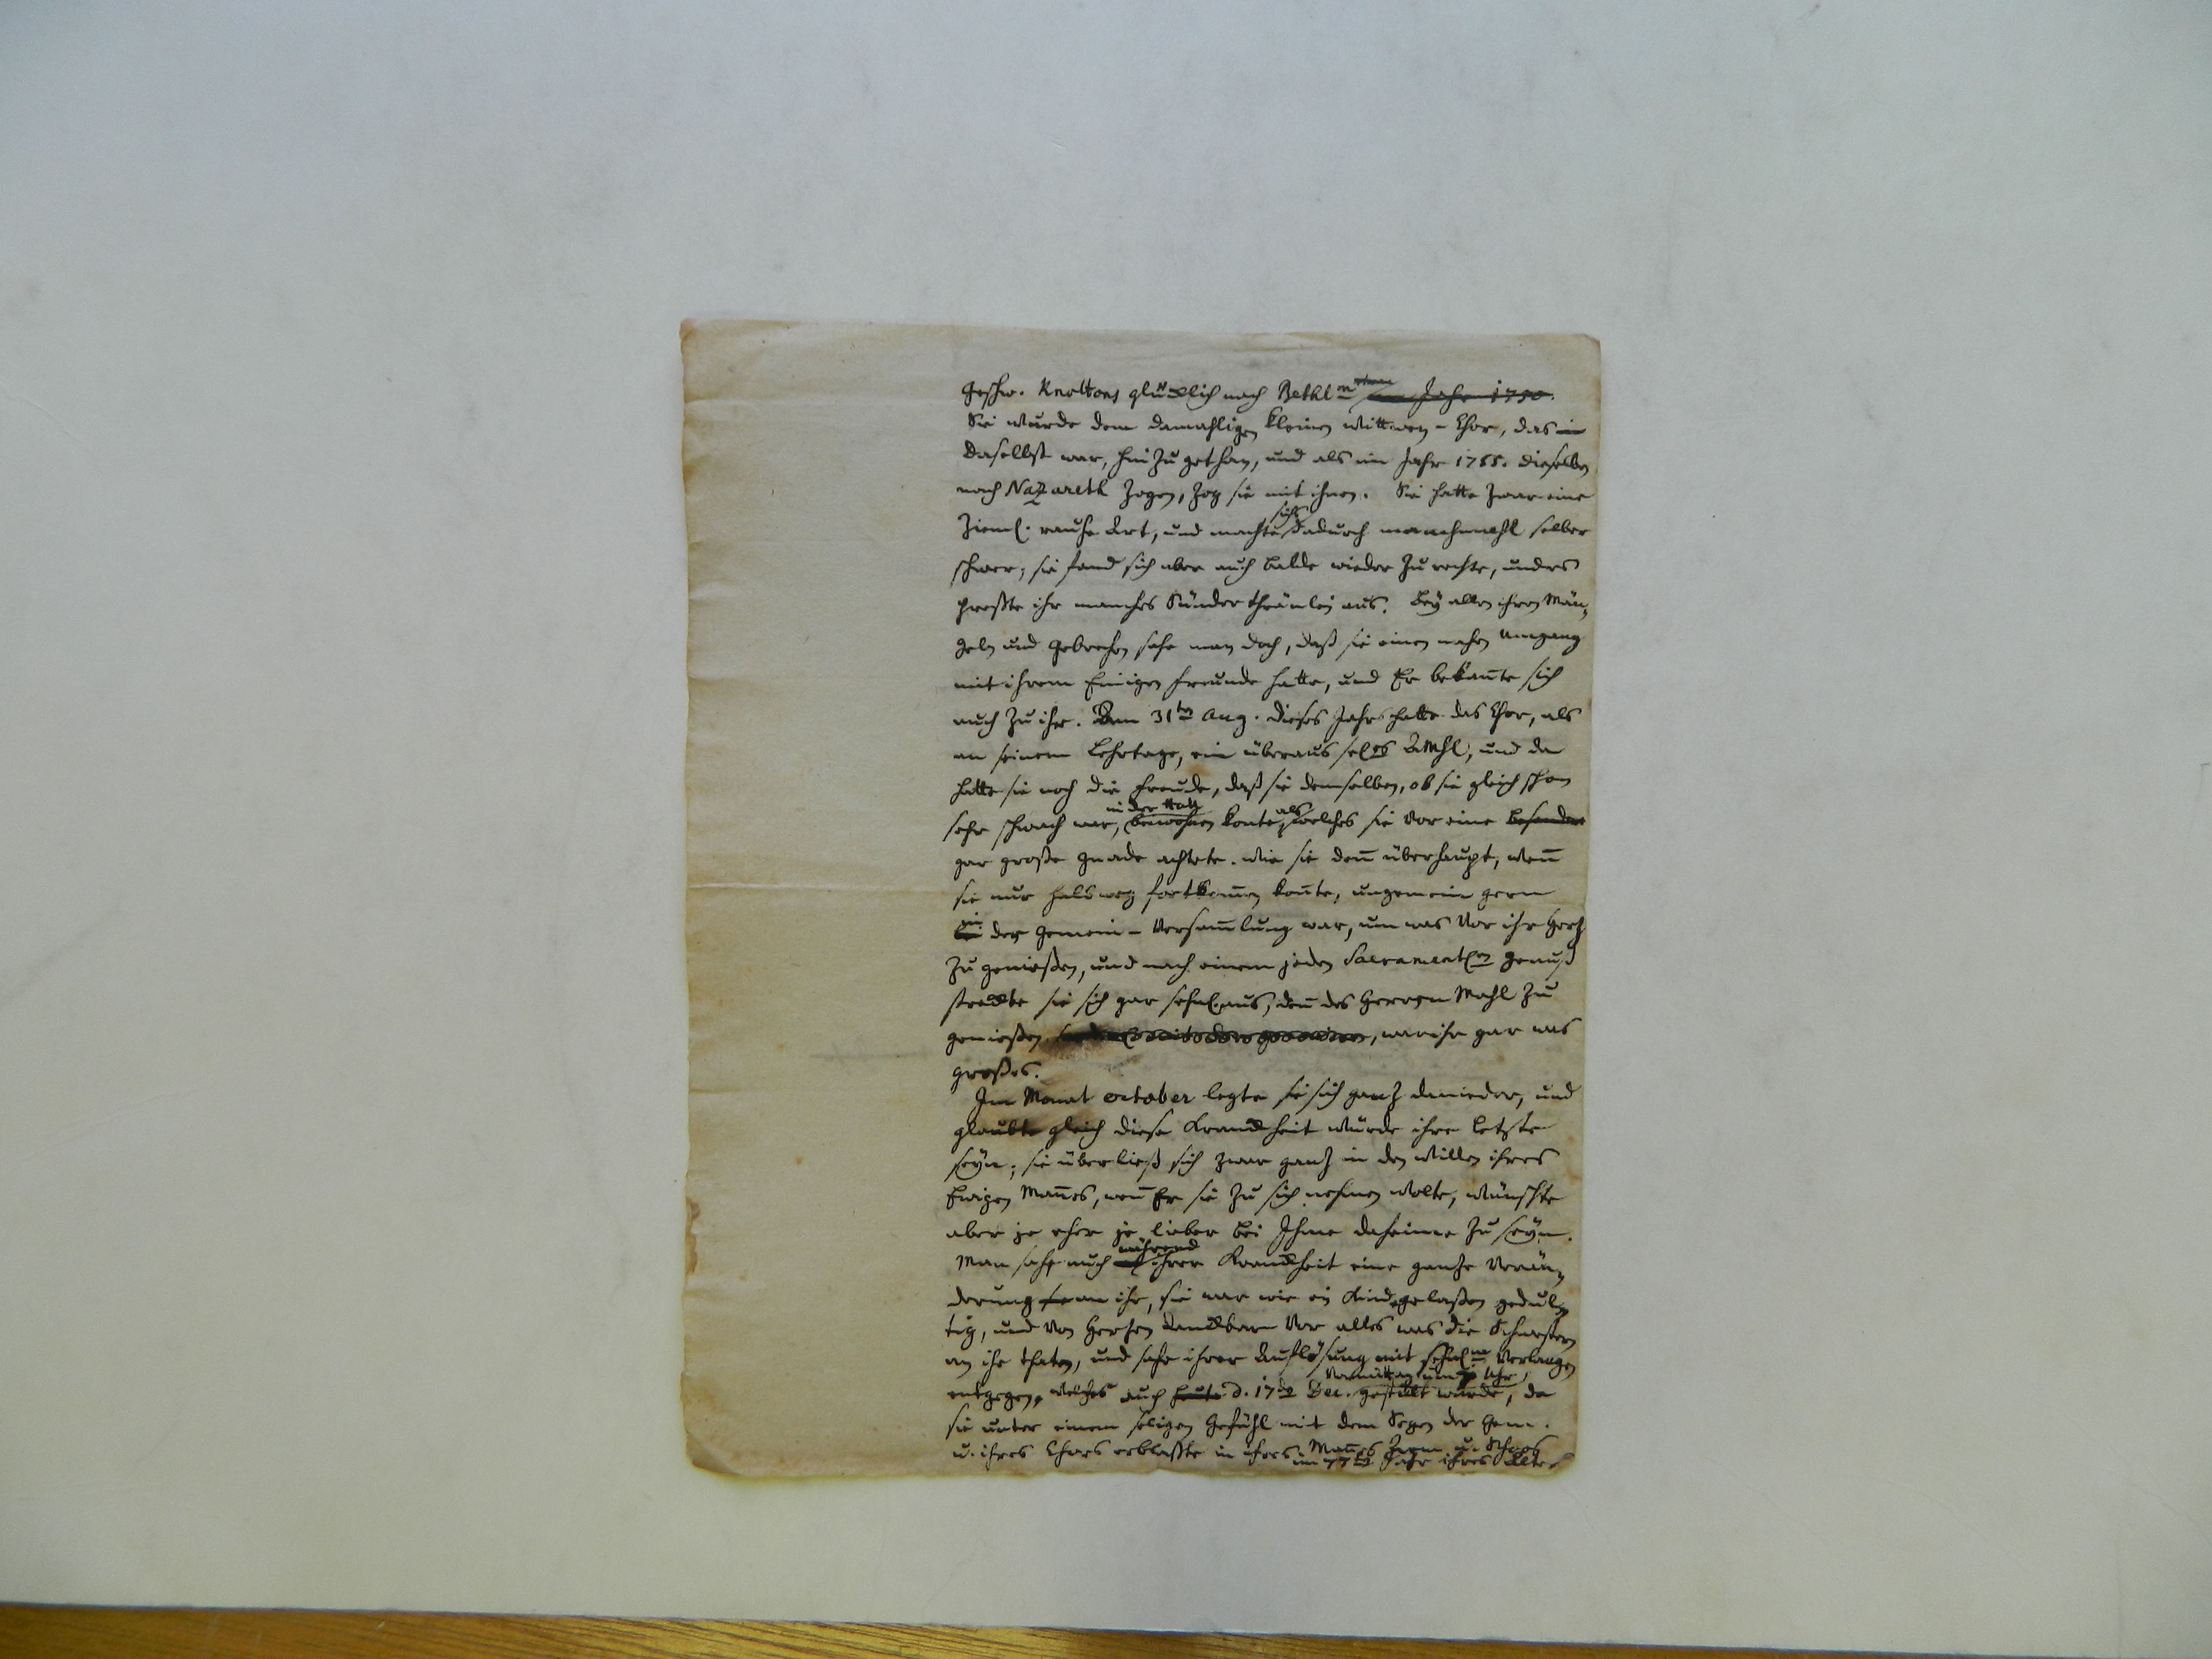 Geschw. Knoltons glücklich nach Bethl<u>m</u> Jahr 1750.
Sie wurde dem damahligen kleinen Wittwen-Chor, das
daselbst war, hinzu gethan, und als im Jahr 1755. dieselben
nach Nazareth zogen, zog sie mit ihnen. Sie hatte zwar eine
Zieml: rauhe Art, und machte sich dadurch manchmahl selber
schwer; sie fand sich aber auch balde wieder zu rechte, und es
preßte ihr manches Sünder thränlein aus. Bey allen ihren Män-
geln und Gebrechen sahe man doch, daß sie einen nahen Umgang
mit ihrem Einigen Freunde hatte, und Er bekañte sich
auch zu ihr. Den 31ten Aug. dieses Jahrs hatte das Chor, als
an seinem Bettage, ein überaus sel<u>es</u> AMhl, und da
hatte sie noch die Freude, daß sie demselben, ob sie gleich schon
sehr schwach war, beiwohnen konte, welches sie vor eine besondere
gar große Gnade achtete. Wie sie deñ überhaupt, weñ
sie nur halbweg fortkom̃en koñte, ungemein gern
in der Gemein-Versam̃lung war, um was vor ihr Herz
zu genießen, und nach einem jeden Sacramentl<u>en</u> Genuß
streckte sie sich gar sehnl. aus, deñ des Herren Mahl zu
genießen, war ihr gar was
großes.
Im Monat October legte sie sich ganz danieder, und
glaubte gleich diese Kranckheit würde ihre letzte
seyn; sie überließ sich zwar ganz in den Willen ihres
Ewigen Mañes, weñ Er sie zu sich nehmen wolte, wünschte
aber je eher je lieber bei Ihme daheime zu seyn.
Man sahe auch während ihrer Kranckheit eine ganze Verän-
derung an ihr, sie war wie ein Kind, gelaßen gedul-
tig, und von Herzen danckbar vor alles was die Schwestern
an ihr thaten, und sahe ihrer Auflösung mit sehnl<u>m</u> Verlangen
entgegen, welches auch heute d. 17<u>t</u> Dec. Vormittag um Uhr, gestillt wurde, da
sie unter einem seligen Gefühl mit dem Segen der Gem.
u. ihres Chors erblaßte in ihres Mañes Arm u. Schoos
im 77<u>t</u> Jahr ihres Alters